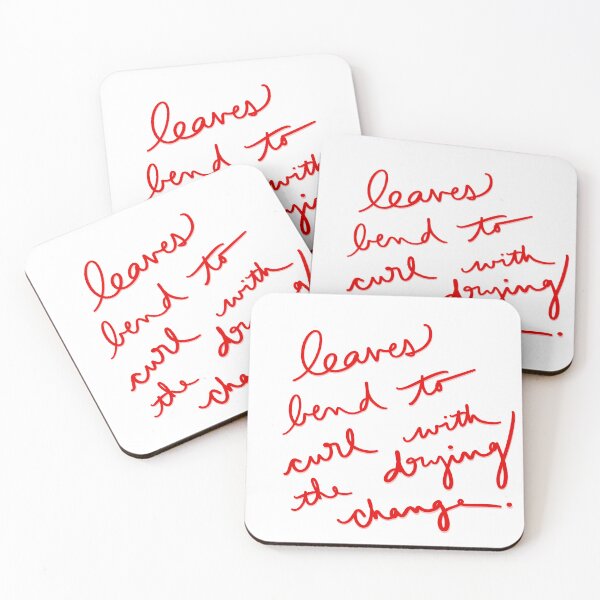 leaves
bend to
with
leaves
bend to
curl with
drying
leaves
bend to
curl with
the drying
leaves
bend to
curl with
the drying
change.